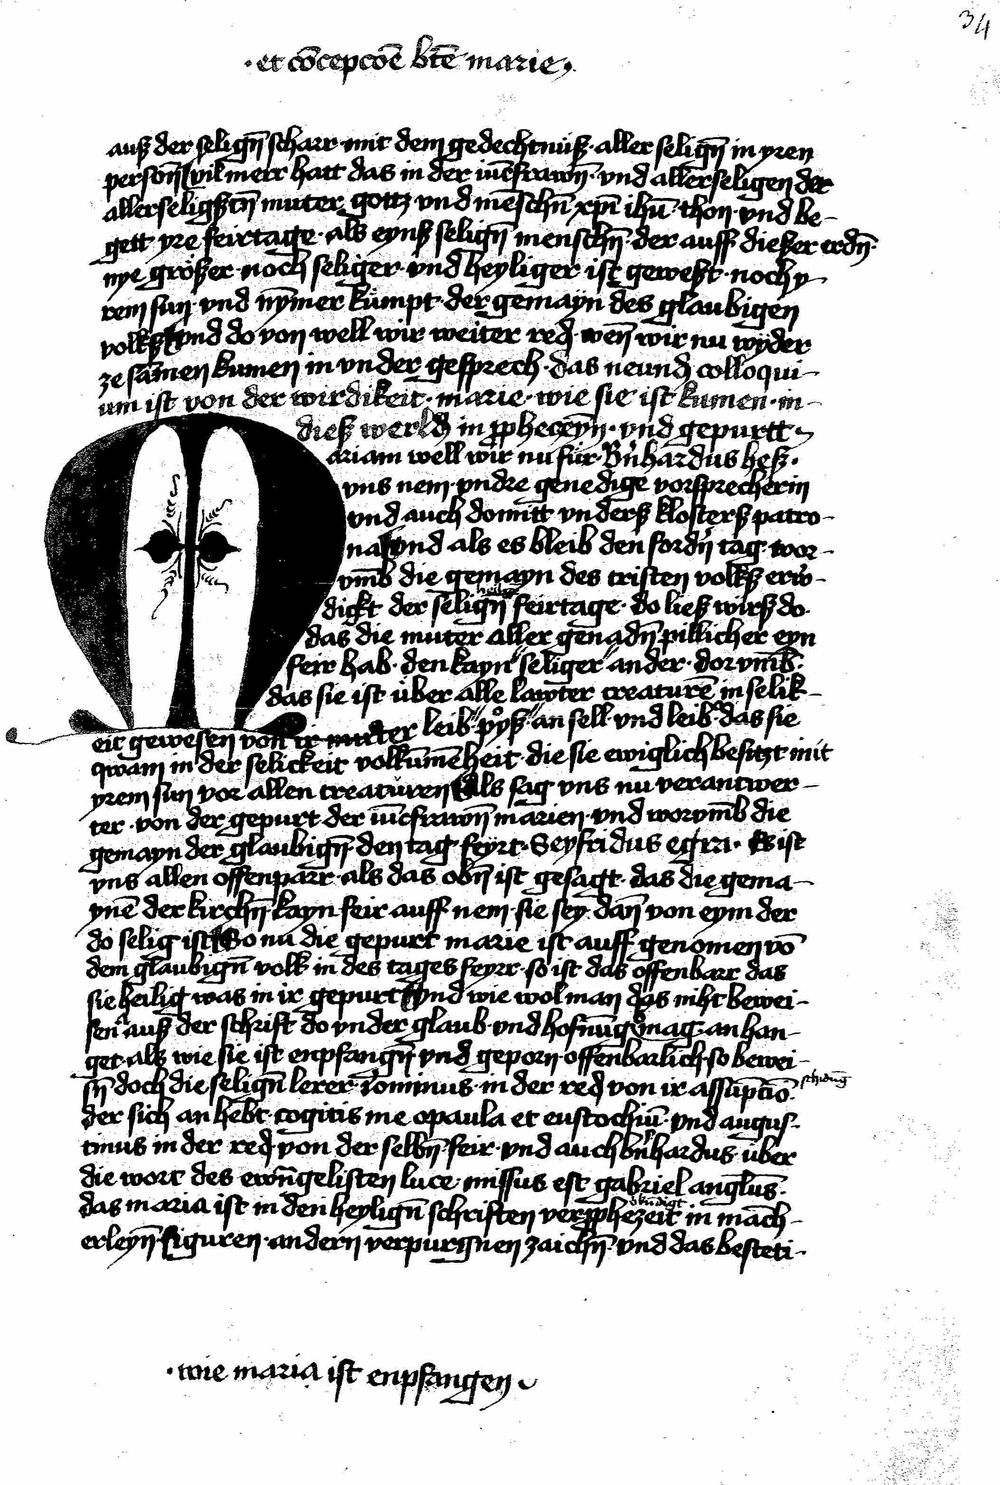 34
·et cōcepcōe btē marie·
auß der seligñ scharr·mit dem gedechtnüß·aller seligñ in yren
personñ vil merr hatt das in der iūcfrawñ·vnd allerseligen der
allerseligßtñ muter gottz vnd mēschñ xpī ihū·thon·vnd be-
gett yre feirtage·als eynß seligñ menschñ·der auff dießer erdñ·
nye größer·noch seliger·vnd heyliger ist geweßt·noch y-
rem sun·vnd nȳmer kümpt·der gemayn des glaubigen
volkß vnd do von well wir weiter red·wen̄ wir nu wyder
ze sāmen kumen in vnder gesprech·das neund colloqui-
um ist von der wirdikeit·marie·wie sie ist kumen·in-
dieß werld in ppheceyñ·vnd gepurtt
Mariam well wir nu für·Bn̄hardus heß·
vns nem·vndre genedige vorsprecherin
vnd auch domitt vnderß klosterß patro-
na vnd als es bleib den fordñ tag·wor-
vm̄b die gemayn des cristen volkß erw-
dickt der seligñ heilige feirtage·do ließ wirß do
das die muter aller genadñ pillicher eyn
feir hab·den kayn seliger ander·dorvm̄b·
das sie ist über alle lawter creaturē in selik-
eit gewesen von ir muter leib pyß an sell vnd leib das sie
qwam in der selickeit volkūmēheit·die sie ewiglich besitzt mit
yrem sun vor allen creatüren Als sag vns nu verantwer-
ter·von der gepurt der iūcfrawñ marien·vnd worvm̄b die
gemayn der glaubigñ·den tag feyrt·Seyfridus Es ist
vns allen offenparr·als das obñ ist gesagt·das die gema-
ynē der kirchñ·kayn feir auff nem·sie sey·dañ von eym der
do selig ist So nu die gepurt marie ist auff genomen vō
dem glaubigñ volk in des tages feyrr·so ist das offenbarr das
sie heilig was in ir gepurt vnd wie wol man das niht bewei-
sen auß der schrift do vnder glaub·vnd hofnūg mag·an han-
get·als wie sie ist enpfangñ vnd geporn offenbarlich·so bewei-
sñ doch die seligñ lerer·Ieronimus·in der red von ir assūpcio·
der sich an hebt·cogitis me o paula et eustochiū·vnd augus-
tinus in der red von der selbñ·feir·vnd auch bn̄hardus·über
die wort des ewāgelisten luce·missus est gabriel anglus·
das maria ist in den heyligñ schriften verpphezeit in māch-
erleyñ·figuren·andern verporgnen zaichñ·vnd das besteti-
·wie maria ist enpfangen